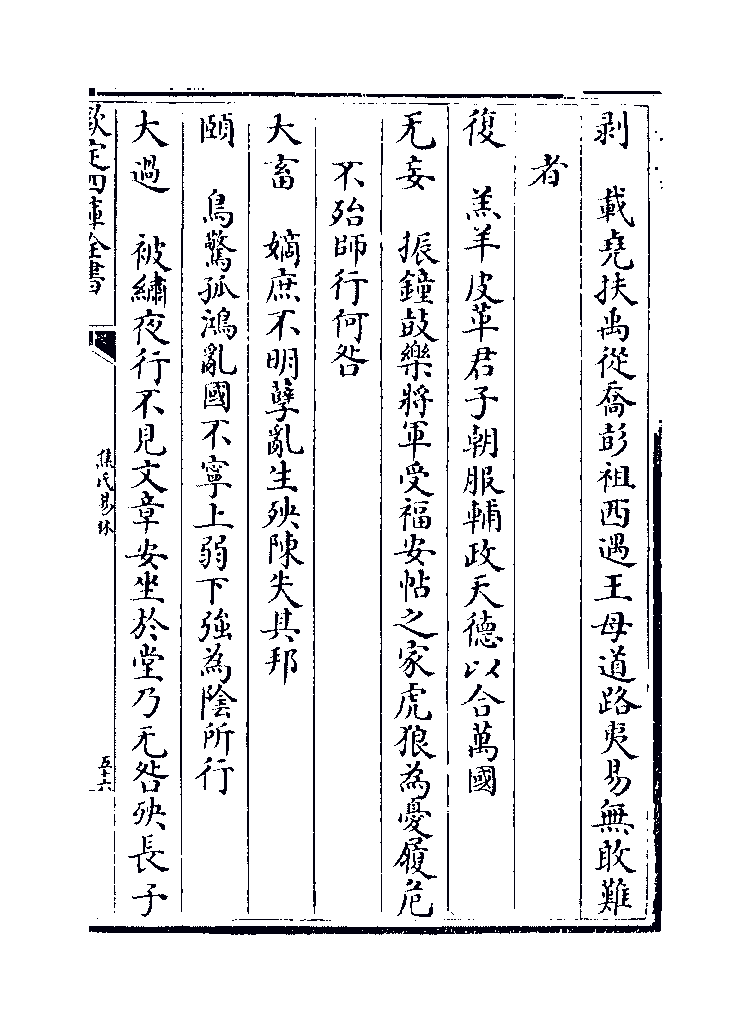 剥　載堯扶禹從喬彭祖西遇王母道路夷易無敢難
者
復　羔羊皮革君子朝服輔政天德以合萬國
无妄　振鐘鼓樂將軍受福安帖之家虎狼為憂履危
不殆師行何咎
大畜　嫡庶不明孽亂生殃陳失其邦
頤　鳥驚孤鴻亂國不寧上弱下強為陰所行
大過　被繡夜行不見文章安坐於堂乃无咎殃長子
欽定四庫全書
焦氏易林
五十六